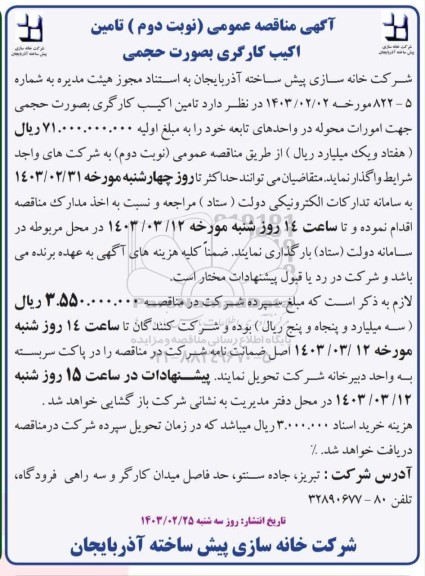 آگهی مناقصه عمومی (نوبت دوم ) تامین
اکیپ کارگری بصورت حجمی
شرکت خانه سازی
پیش ساخته آذربایجان
شرکت خانه سازی
پیش ساخته آذربایجان
شـرکت خانه سـازی پیش سـاخته آذربایجان به اسـتناد مجوز هیئت مدیره به شماره
۵ - ۸۲۲ مورخـه ۱۴۰۳/۰۲/۰۲ در نظـر دارد تامین اکیـپ کارگری بصورت حجمی
جهت امورات محوله در واحدهای تابعه خود را به مبلغ اولیه ۷۱.۰۰۰.۰۰۰.۰۰۰ ریال
( هفتاد ویک میلیارد ریال ) از طریق مناقصه عمومی (نوبت دوم) به شرکت های واجد
شرایط واگذار نماید. متقاضیان می توانند حداکثر تا روز چهارشنبه مورخه ۱۴۰۳/۰۲/۳۱
به سامانه تدارکات الکترونیکی دولت ( ستاد ) مراجعه و نسبت به اخذ مدارک مناقصه
اقدام نموده و تا ساعت ۱۴ روز شنبه مورخه ۱۲ /۰۳ /۱۴۰۳ در محل مربوطه در
سـامانه دولت (ستاد) بارگذاری نمایند. ضمناً کلیه هزینه های آگهی به عهده برنده می
باشد و شرکت در رد یا قبول پیشنهادات مختار است.
لازم به ذکر است که مبلغ سـپرده شـرکت در مناقصـه ۳.۵۵۰.۰۰۰.۰۰۰ ریال
( سه میلیارد و پنجاه و پنج ریال ) بوده و شـرکت کنندگان تا ساعت ۱۴ روز شنبه
مورخه ۱۲ /۰۳ /۱۴۰۳ اصل ضمانت نامه شرکت در مناقصه را در پاکت سربسته
بـه واحد دبیرخانه شـرکت تحویل نمایند. پیشـنهادات در ساعت ۱۵ روز شنبه
۱۲ /۰۳ /۱۴۰۳ در محل دفتر مدیریت به نشانی شرکت باز گشایی خواهد شد .
هزینه خرید اسناد ۳.۰۰۰.۰۰۰ ریال میباشد که در زمان تحویل سپرده شرکت درمناقصه
دریافت خواهد شد. ٪
آدرس شرکت : تبریز، جاده سنتو، حد فاصل میدان کارگر و سه راهی فرودگاه،
تلفن ۸۰ - ۳۲۸۹۰۶۷۷
تاریخ انتشار: روز سه شنبه ۱۴۰۳/۰۲/۲۵
شرکت خانه سازی پیش ساخته آذربایجان
پایگاه اطلاع رسانی مناقصه و مزایده